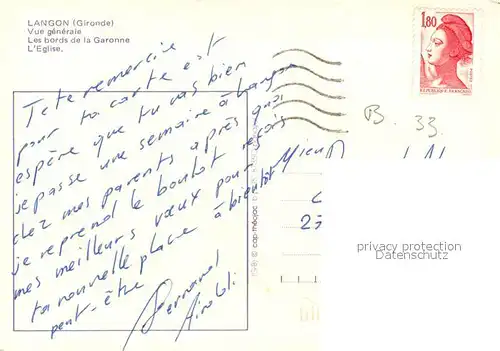 LANGON (Gironde)
Vue générale
Les bords de la Garonne
L'Eglise.
1,80
REPUBLIQUE FRANCAISE
B. 33.
Je te remercie
pour ta carte et
espère que tu vas bien
je passe une semaine à Langon
chez mes parents après quoi
je reprend le boulot
mes meilleurs vœux pour
ta nouvelle place à bientôt
peut-être
Bernard
privacy protection
AKPOOL.DE